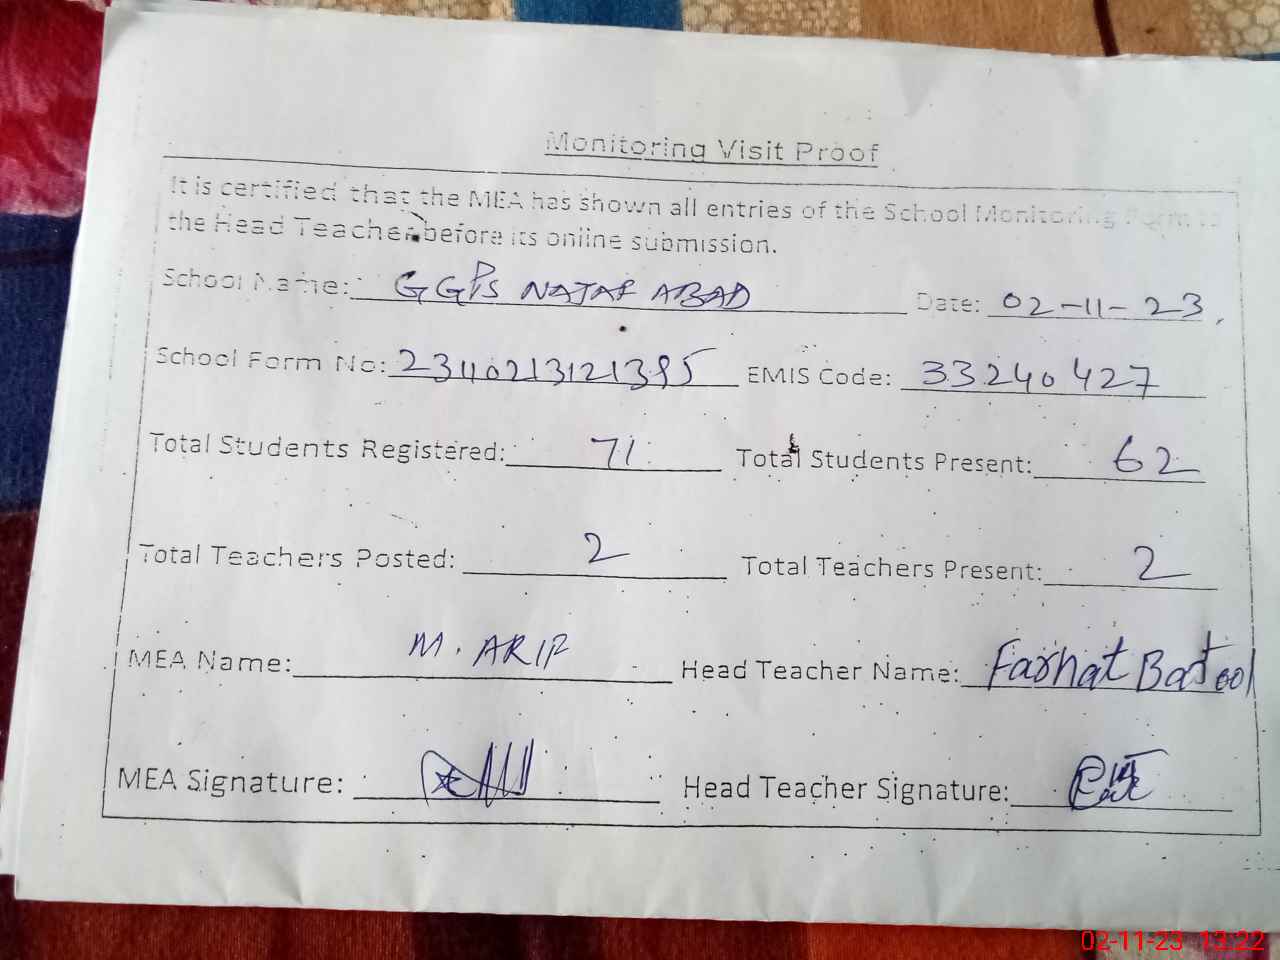 Monitoring Visit Proof
It is certified that the MEA has shown all entries of the School Monitoring Form to
the Head Teacher before its online submission.
School Name: GGPS NAJAF ABAD Date: 02-11-23
School Form No: 23110213121395 EMIS Code: 33240427
Total Students Registered: 71 Total Students Present: 62
Total Teachers Posted: 2 Total Teachers Present: 2
MEA Name: M. ARIF Head Teacher Name: Farhat Batool
MEA Signature: Head Teacher Signature:
02-11-23 13:22